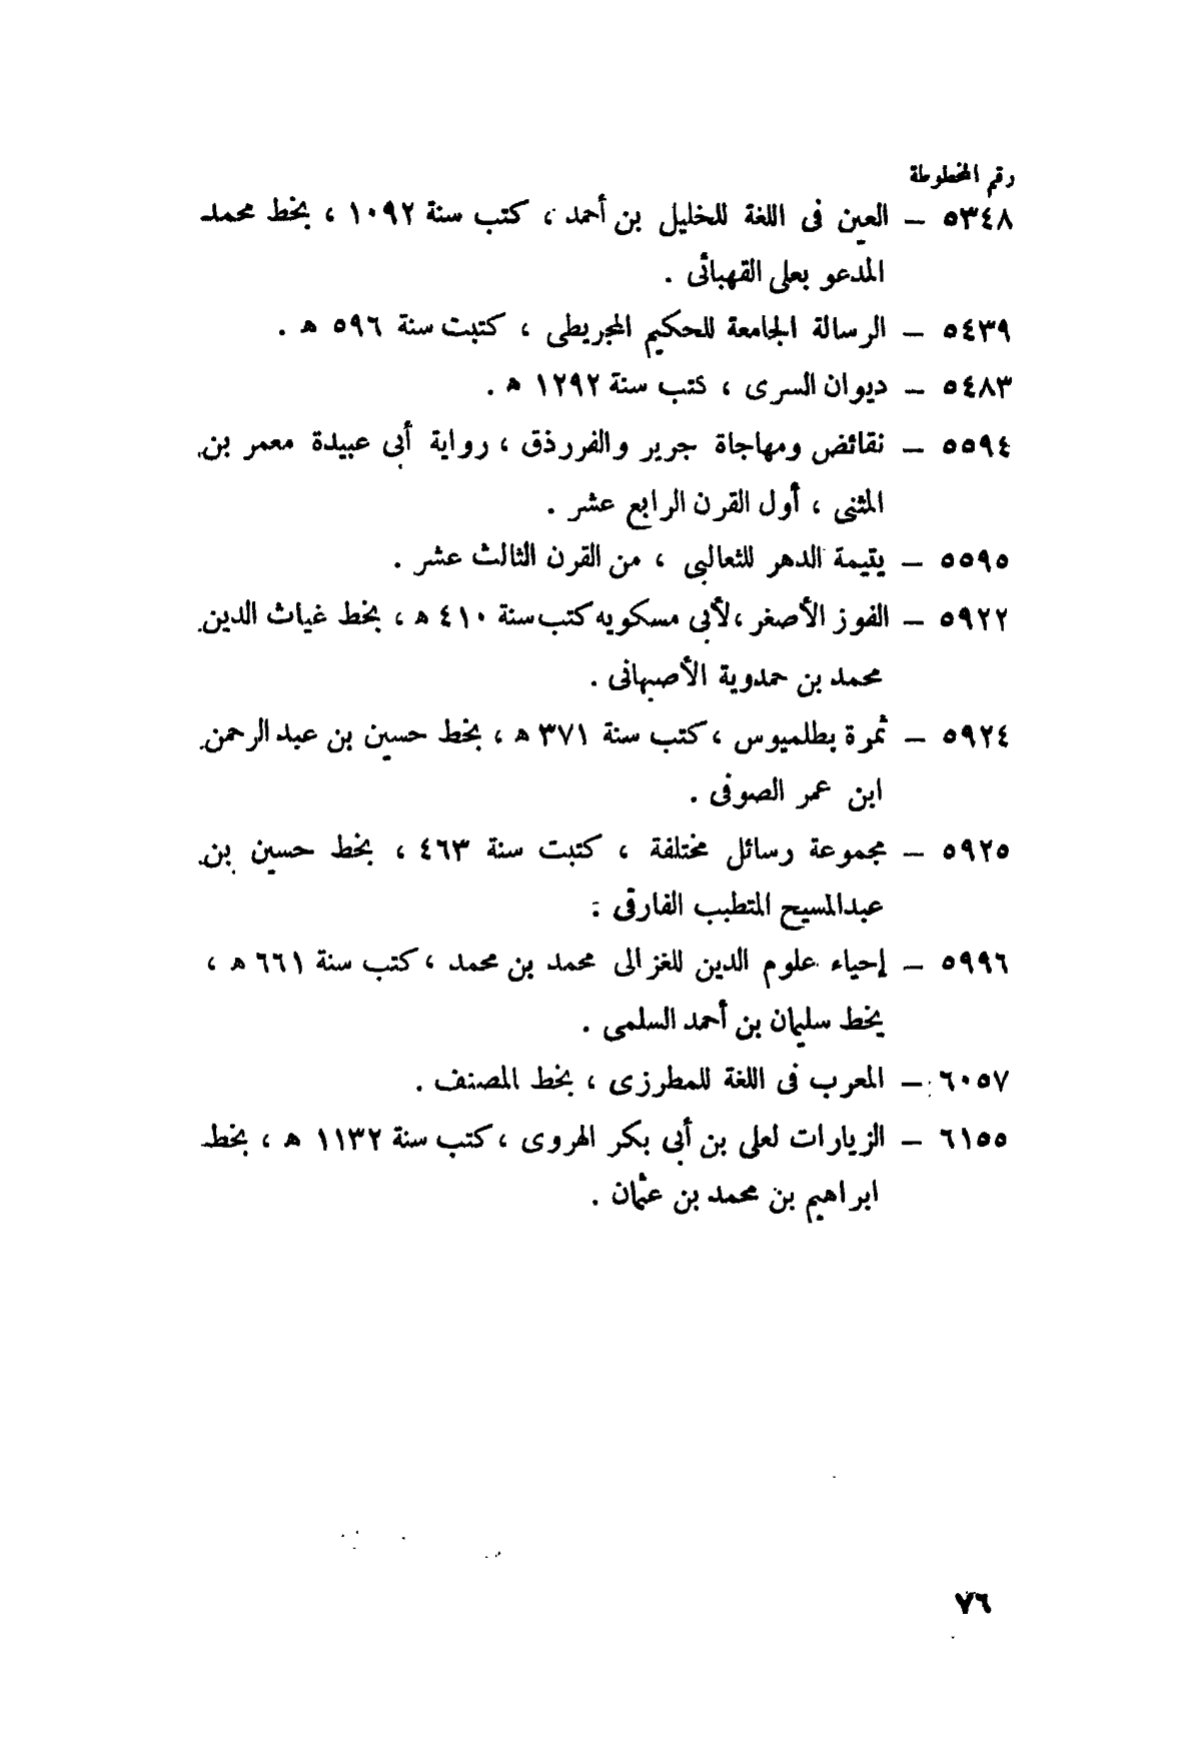 رقم المخطوطة
٥٣٤٨ — العين فى اللغة للخليل بن أحمد ، كتب سنة ١٠٩٢ ، بخط محمد
المدعو بعلى القهبائى .
٥٤٣٩ — الرسالة الجامعة للحكيم المجريطى ، كتبت سنة ٥٩٦ ه .
٥٤٨٣ — ديوان السرى ، كتب سنة ١٢٩٢ ه .
٥٥٩٤ — نقائض ومهاجاة جرير والفررذق ، رواية أبى عبيدة معمر بن
المثنى ، أول القرن الرابع عشر .
٥٥٩٥ — يتيمة الدهر للثعالبى ، من القرن الثالث عشر .
٥٩٢٢ — الفوز الأصغر ، لأبى مسكويه كتب سنة ٤١٠ ه ، بخط غياث الدين
محمد بن حمدوية الأصبهانى .
٥٩٢٤ — ثمرة بطلميوس ، كتب سنة ٣٧١ ه ، بخط حسين بن عبد الرحمن
ابن عمر الصوفى .
٥٩٢٥ — مجموعة رسائل مختلفة ، كتبت سنة ٤٦٣ ، بخط حسين بن
عبدالمسيح المتطبب الفارقى .
٥٩٩٦ — إحياء علوم الدين للغزالى محمد بن محمد ، كتب سنة ٦٦١ ه ،
يخط سليمان بن أحمد السلمى .
٦٠٥٧ — المعرب فى اللغة للمطرزى ، بخط المصنف .
٦١٥٥ — الزيارات لعلى بن أبى بكر الهروى ، كتب سنة ١١٣٢ ه ، بخط
ابراهيم بن محمد بن عثمان .
٧٦